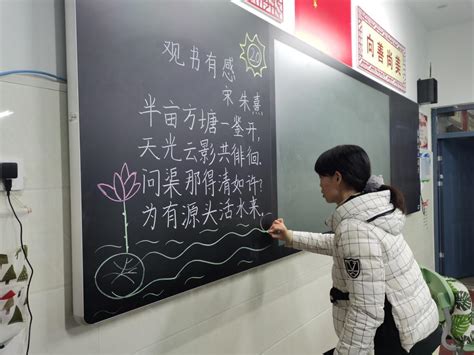 观书有感
宋 朱熹
半亩方塘一鉴开，
天光云影共徘徊。
问渠那得清如许？
为有源头活水来。
向善尚美